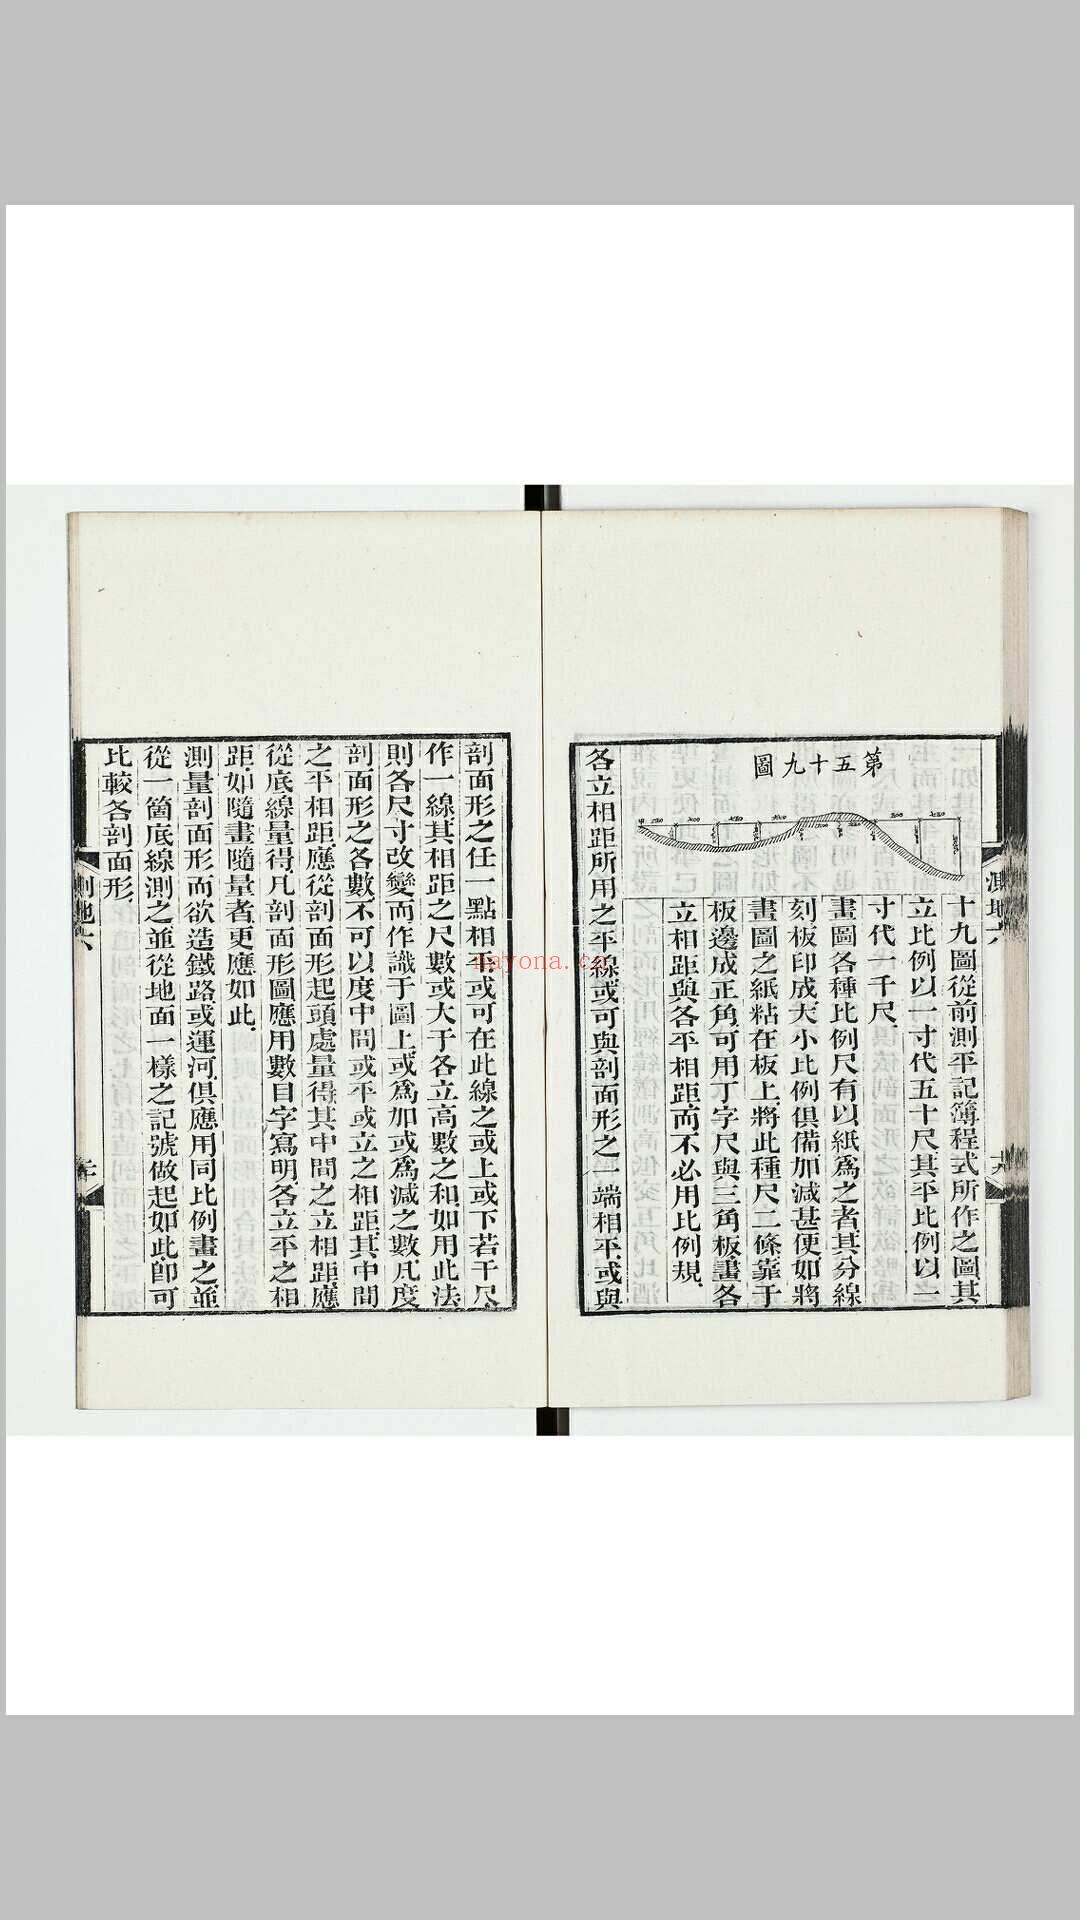 第五十九圖
十九圖從前測平記簿程式所作之圖其
立比例以一寸代五十尺其平比例以一
寸代一千尺
畫圖各種比例尺有以紙爲之者其分線
刻板印成大小比例俱備加減甚便如將
畫圖之紙粘在板上將此種尺二條靠于
板邊成正角可用丁字尺與三角板畫各
立相距與各平相距而不必用比例規
各立相距所用之平線或可與剖面形之一端相平或與
測地六
剖面形之任一點相平或可在此線之或上或下若干尺
作一線其相距之尺數或大于各立高數之和如用此法
則各尺寸改變而作識于圖上或爲加或爲減之數凡度
剖面形之各數不可以度中間或平或立之相距其中間
之平相距應從剖面形起頭處量得其中間之立相距應
從底線量得凡剖面形圖應用數目字寫明各立平之相
距如隨畫隨量者更應如此
測量剖面形而欲造鐵路或運河俱應用同比例畫之並
從一箇底線測之並從地面一樣之記號做起如此卽可
比較各剖面形
測地六
nayona.cn